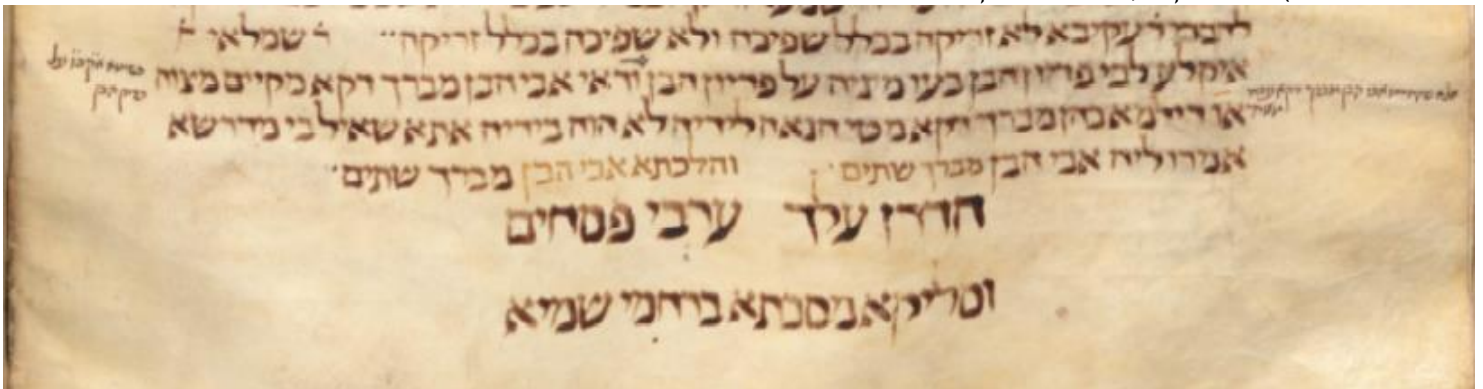 לדברי ר' עקיבא לא זריקה בכלל שפיכה ולא שפיכה בכלל זריקה ·· ר' שמלאי
איקלע לבי פדיון הבן בעי מיניה על פדיון הבן ודאי אבי הבן מברך דקא מקיים מצוה
או דיילמא כהן מברך דקא מטי הנאה לידיה לא הוה בידיה אתא שאיל בי מדרשא
אמרו ליה אבי הבן מברך שתים · והלכתא אבי הבן מברך שתים ·
הדרן עלך ערבי פסחים
וסליקא מסכתא ברחמי שמיא